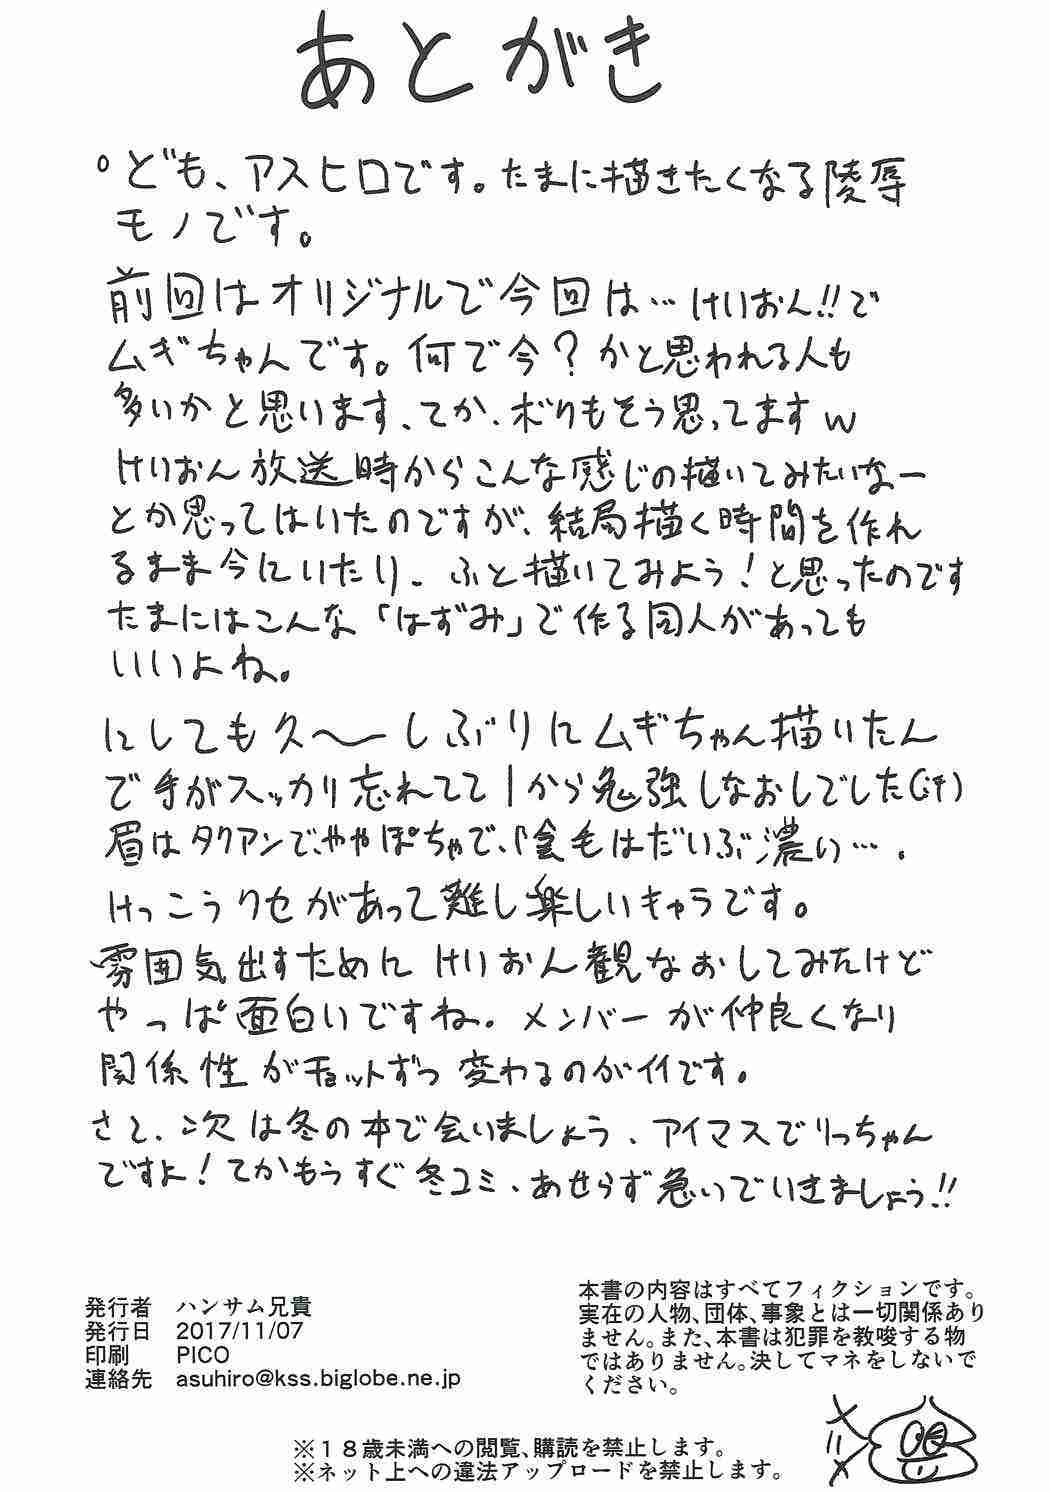 あとがき
° ども、アスヒロです。たまに描きたくなる陵辱
モノです。
前回はオリジナルで今回は…けいおん!!で
ムギちゃんです。何で今？かと思われる人も
多いかと思います、てか、ボクもそう思ってますw
けいおん放送時からこんな感じの描いてみたいなー
とか思ってはいたのですが、結局描く時間を作れ
るまま今にいたり、ふと描いてみよう！と思ったのです
たまにはこんな「はずみ」で作る同人があっても
いいよね。
にしても久〜しぶりにムギちゃん描いたん
で手がスッカリ忘れてて1から勉強しなおしでした(汗)
眉はタクアンで、ややぽちゃで、陰毛はだいぶ濃い…。
けっこうクセがあって難し楽しいキャラです。
雰囲気出すためにけいおん観なおしてみたけど
やっぱ面白いですね。メンバーが仲良くなり
関係性がチョットずつ変わるのがイイです。
さて、次は冬の本で会いましょう、アイマスでりっちゃん
ですよ！てかもうすぐ冬コミ、あせらず急いでいきましょう!!
発行者 ハンサム兄貴
発行日 2017/11/07
印刷 PICO
連絡先 asuhiro@kss.biglobe.ne.jp
本書の内容はすべてフィクションです。
実在の人物、団体、事象とは一切関係あり
ません。また、本書は犯罪を教唆する物
ではありません。決してマネをしないで
ください。
※１８歳未満への閲覧、購読を禁止します。
※ネット上への違法アップロードを禁止します。